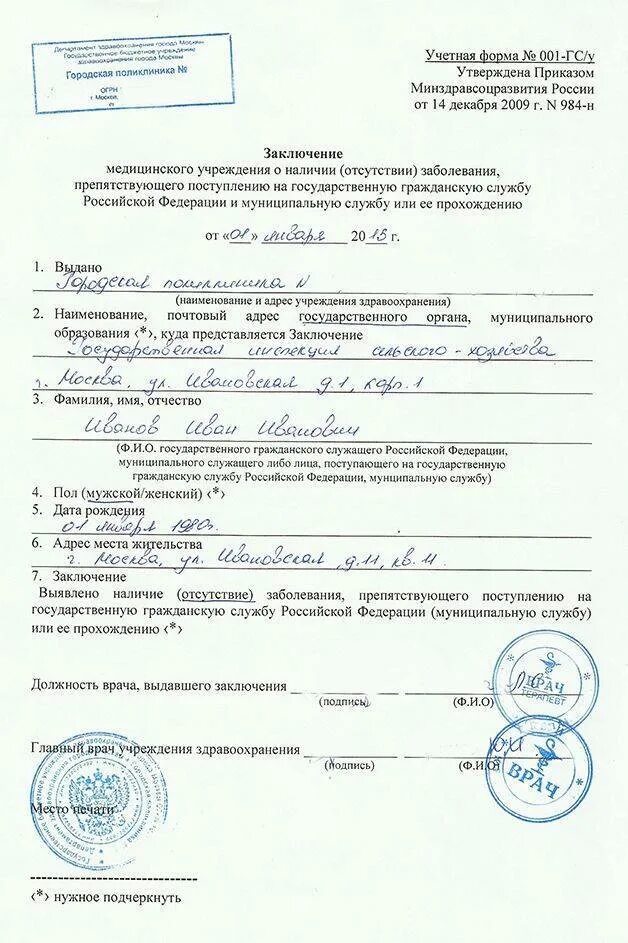 Департамент здравоохранения города Москвы
Государственное бюджетное учреждение
здравоохранения города Москвы
Городская поликлиника №
ОГРН
г. Москва,
Учетная форма № 001-ГС/у
Утверждена Приказом
Минздравсоцразвития России
от 14 декабря 2009 г. N 984-н
Заключение
медицинского учреждения о наличии (отсутствии) заболевания,
препятствующего поступлению на государственную гражданскую службу
Российской Федерации и муниципальную службу или ее прохождению
от «01» января 2015 г.
1. Выдано
Городская поликлиника N
(наименование и адрес учреждения здравоохранения)
2. Наименование, почтовый адрес государственного органа, муниципального
образования <*>, куда представляется Заключение
Государственная инспекция сельского-хозяйства
г. Москва, ул. Ивановская д.1, корп.1
3. Фамилия, имя, отчество
Иванов Иван Иванович
(Ф.И.О. государственного гражданского служащего Российской Федерации,
муниципального служащего либо лица, поступающего на государственную
гражданскую службу Российской Федерации, мунципальную службу)
4. Пол (мужской/женский) <*>
5. Дата рождения
01 января 1980г.
6. Адрес места жительства
г. Москва, ул. Ивановская, д.11, кв. 11.
7. Заключение
Выявлено наличие (отсутствие) заболевания, препятствующего поступлению на
государственную гражданскую службу Российской Федерации (муниципальную службу)
или ее прохождению <*>
Должность врача, выдавшего заключения
(подпись) (Ф.И.О)
ВРАЧ
ТЕРАПЕВТ
Главный врач учреждения здравоохранения
(подпись) (Ф.И.О)
ВРАЧ
Место печати
<*> нужное подчеркнуть